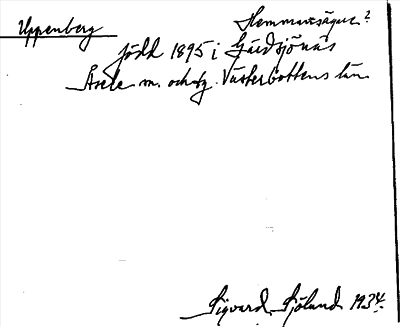 Uppenberg
Hemmansägare?
född 1895 i Gärdsjönäs
Åsele m. och sg. Västerbottens län
Sigvard Sjölund 1934.